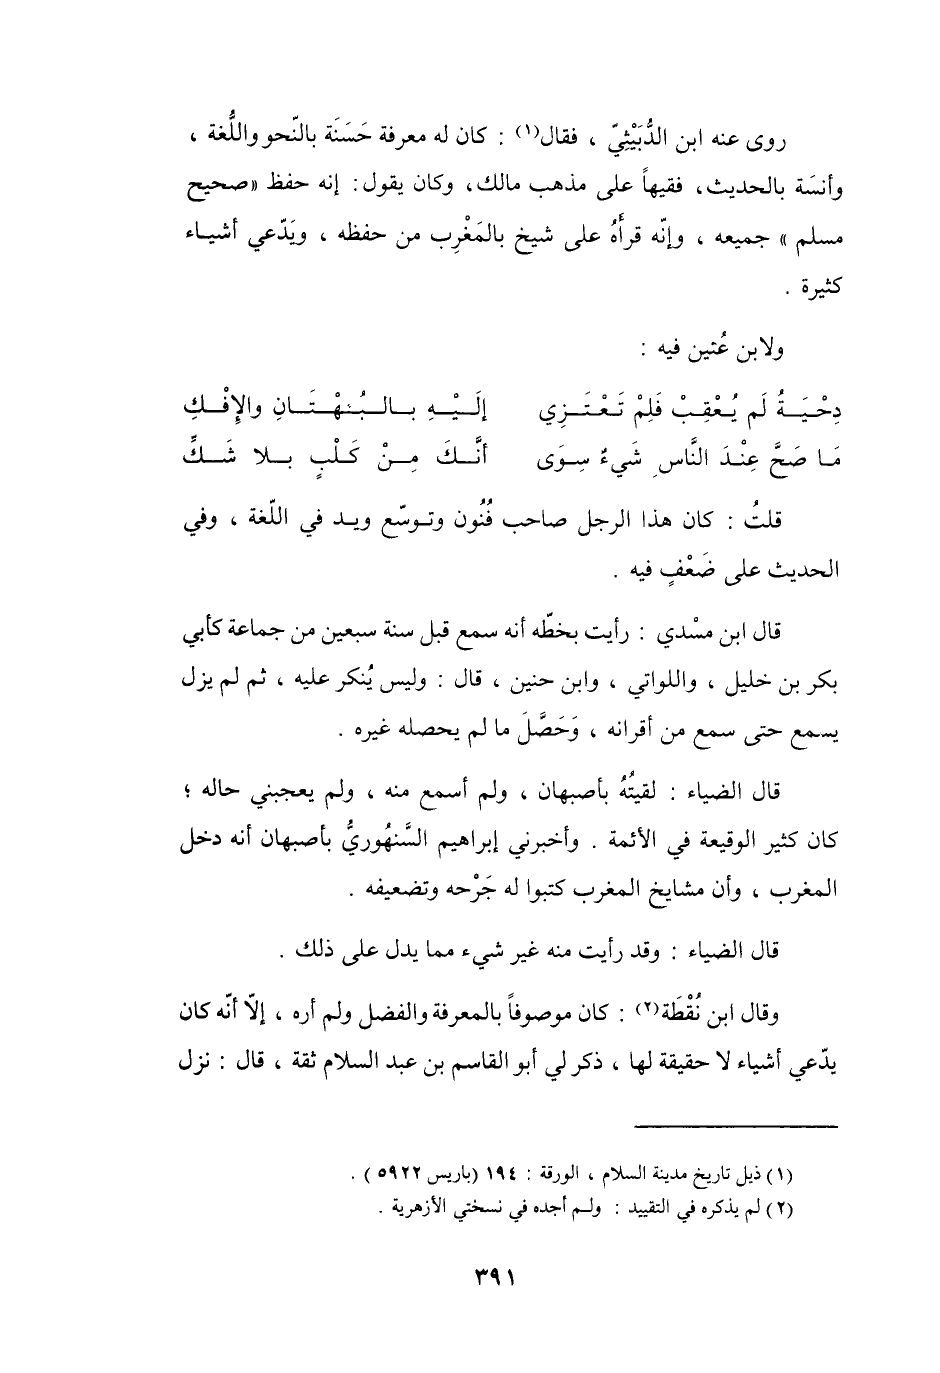 روى عنه ابن الدُّبَيْثِيّ ، فقال(١) : كان له معرفة حَسَنَة بالنّحو واللُّغة ،
وأنسَة بالحديث، فقيهاً على مذهب مالك، وكان يقول: إنه حفظ «صحيح
مسلم » جميعه ، وإنّه قرأَهُ على شيخ بالمَغْرِب من حفظه ، ويَدّعي أشياء
كثيرة .
ولابن عُنين فيه :
دِحْيَةُ لَم يُعْقِبْ فَلِمْ تَعْتَزِي إلَيْهِ بالبُهْتَانِ والإِفْكِ
مَا صَحَّ عِنْدَ النَّاسِ شَيءٌ سِوَى أنَّكَ مِنْ كَلْبٍ بلا شَكِّ
قلتُ : كان هذا الرجل صاحب فُنُون وتوسّع ويد في اللّغة ، وفي
الحديث على ضَعْفٍ فيه .
قال ابن مسْدي : رأيت بخطّه أنه سمع قبل سنة سبعين من جماعة كأبي
بكر بن خليل ، واللواتي ، وابن حنين ، قال : وليس يُنكر عليه ، ثم لم يزل
يسمع حتى سمع من أقرانه ، وَحَصَّلَ ما لم يحصله غيره .
قال الضياء : لقيتُهُ بأصبهان ، ولم أسمع منه ، ولم يعجبني حاله ؛
كان كثير الوقيعة في الأئمة . وأخبرني إبراهيم السَّنهُوريُّ بأصبهان أنه دخل
المغرب ، وأن مشايخ المغرب كتبوا له جَرْحه وتضعيفه .
قال الضياء : وقد رأيت منه غير شيء مما يدل على ذلك .
وقال ابن نُقْطَة(٢) : كان موصوفاً بالمعرفة والفضل ولم أره ، إلّا أنّه كان
يدّعي أشياء لا حقيقة لها ، ذكر لي أبو القاسم بن عبد السلام ثقة ، قال : نزل
(١) ذيل تاريخ مدينة السلام ، الورقة : ١٩٤ (باريس ٥٩٢٢ ) .
(٢) لم يذكره في التقييد : ولم أجده في نسختي الأزهرية .
٣٩١